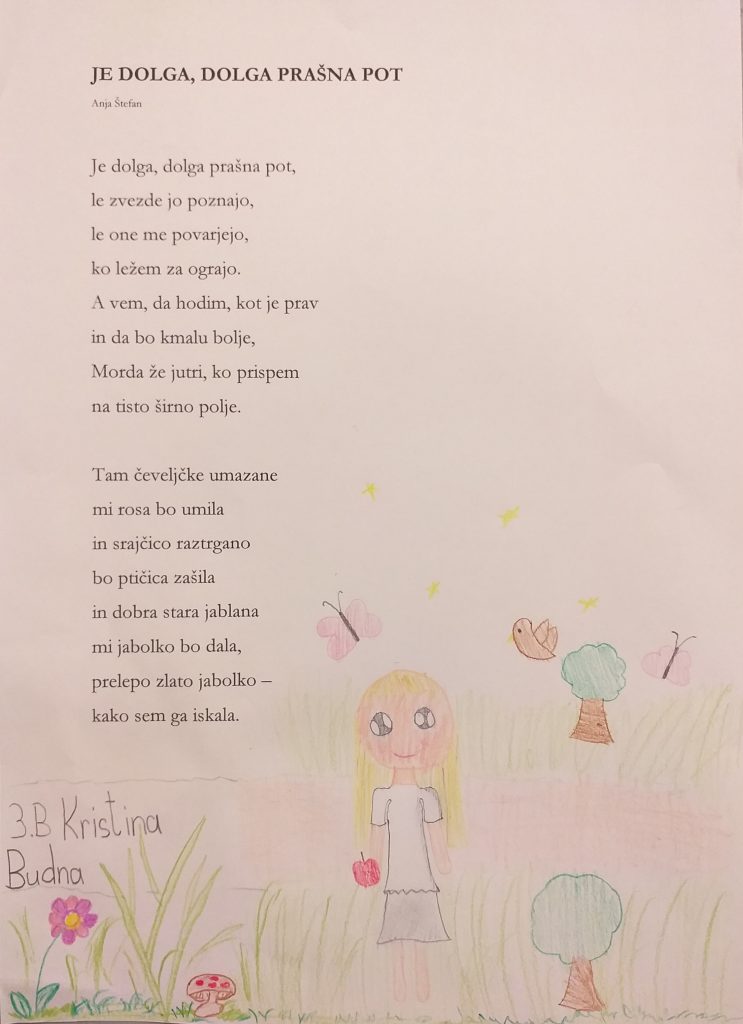 JE DOLGA, DOLGA PRAŠNA POT
Anja Štefan
Je dolga, dolga prašna pot,
le zvezde jo poznajo,
le one me povarjejo,
ko ležem za ograjo.
A vem, da hodim, kot je prav
in da bo kmalu bolje,
Morda že jutri, ko prispem
na tisto širno polje.
Tam čeveljčke umazane
mi rosa bo umila
in srajčico raztrgano
bo ptičica zašila
in dobra stara jablana
mi jabolko bo dala,
prelepo zlato jabolko –
kako sem ga iskala.
3.B Kristina
Budna